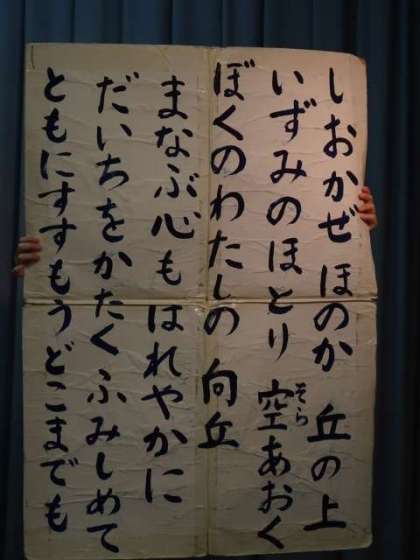 しおかぜ ほのか 丘の上
いずみのほとり 空あおく
そら
ぼくのわたしの 向丘
まなぶ心も はれやかに
だいちをかたく ふみしめて
ともにすすもうどこまでも